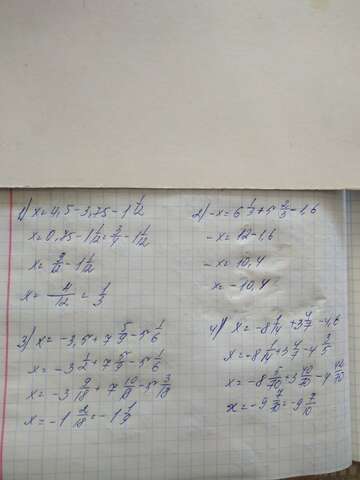 1) x = 4,5 - 3,75 - 1 1/12
x = 0,75 - 1 1/12 = 3/4 - 1 1/12
x = 9/12 - 1 1/12
x = - 4/12 = 1/3
2) - x = 6 1/3 + 5 2/3 - 1,6
- x = 12 - 1,6
- x = 10,4
x = - 10,4
3) x = - 3,5 + 7 5/9 - 5 1/6
x = - 3 1/2 + 7 5/9 - 5 1/6
x = - 3 9/18 + 7 10/18 - 5 3/18
x = - 1 2/18 = - 1 1/9
4) x = - 8 1/14 + 3 4/7 - 4,6
x = - 8 1/14 + 3 4/7 - 4 3/5
x = - 8 5/70 + 3 40/70 - 4 42/70
x = - 9 7/70 = - 9 7/10